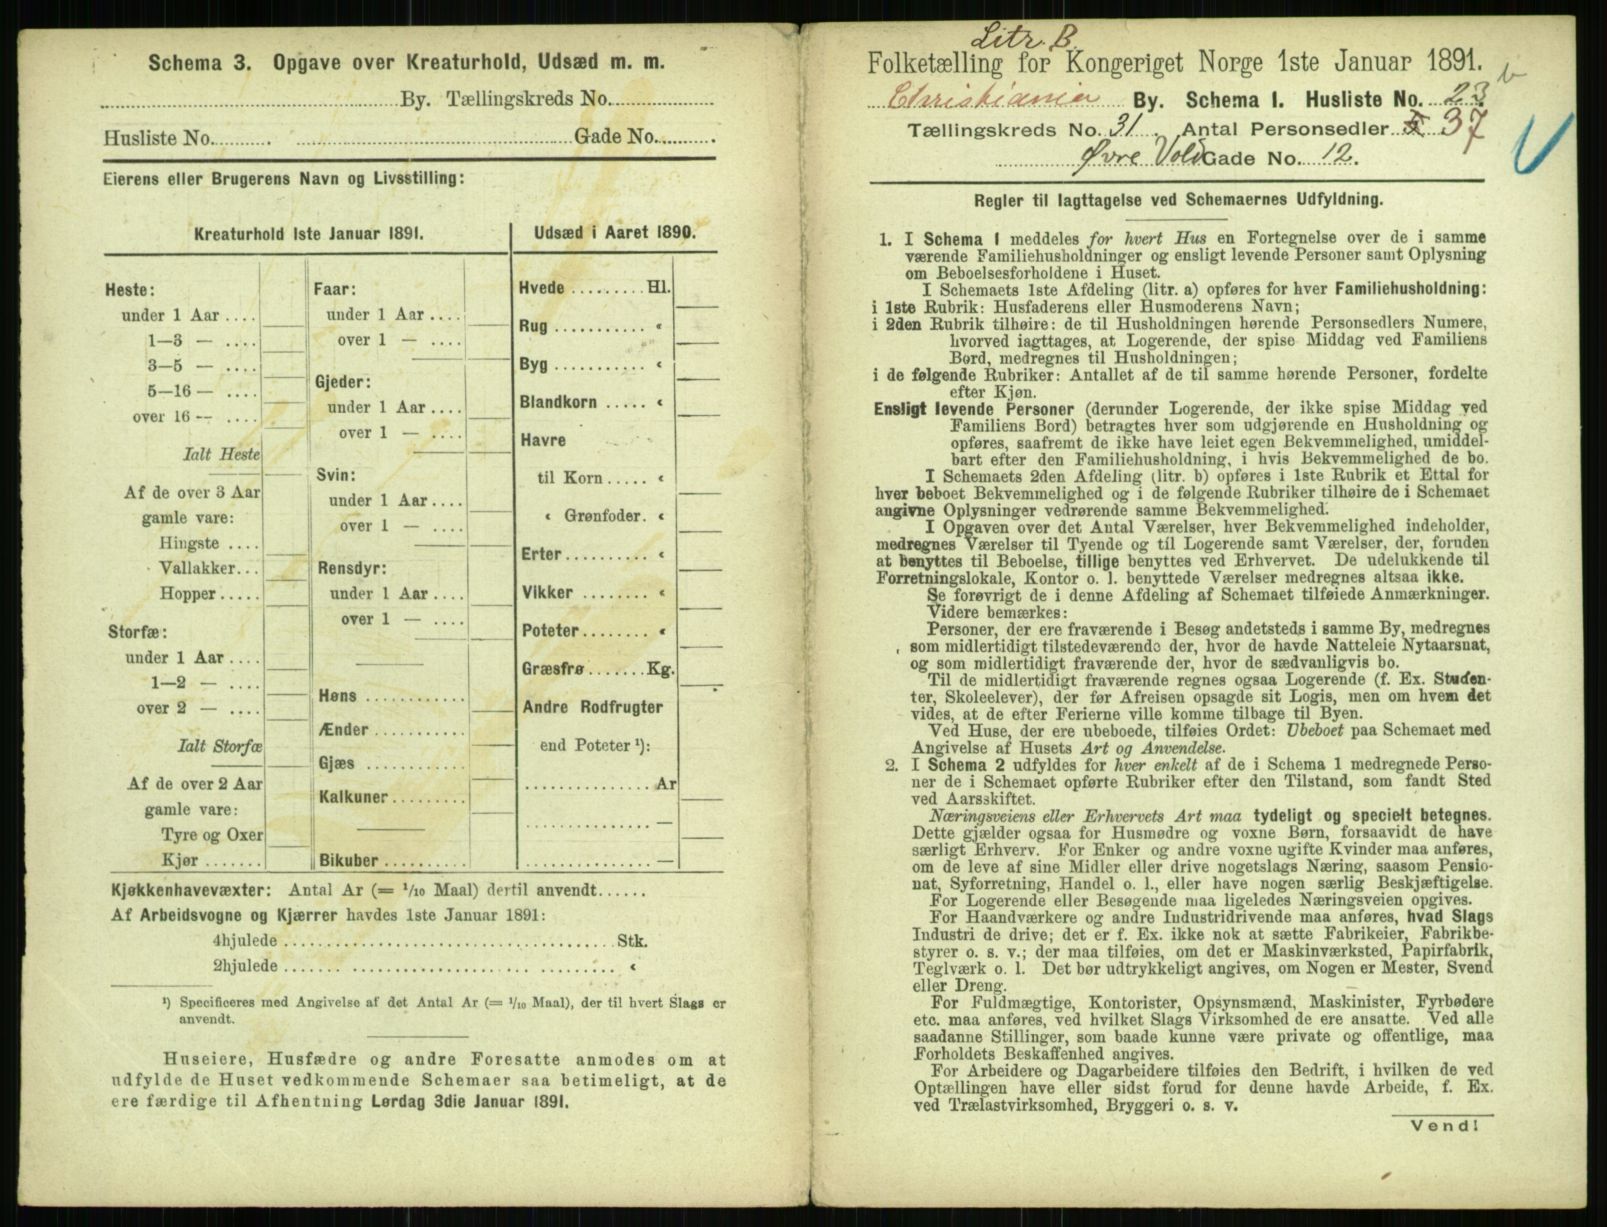 Schema 3. Opgave over Kreaturhold, Udsæd m. m.
By. Tællingskreds No.
Husliste No. Gade No.
Eierens eller Brugerens Navn og Livsstilling:
Kreaturhold 1ste Januar 1891.
Heste:
under 1 Aar
1—3 —
3—5 —
5—16 —
over 16 —
Ialt Heste
Af de over 3 Aar
gamle vare:
Hingste
Vallakker
Hopper
Storfæ:
under 1 Aar
1—2 —
over 2 —
Ialt Storfæ
Af de over 2 Aar
gamle vare:
Tyre og Oxer
Kjør
Faar:
under 1 Aar
over 1 —
Gjeder:
under 1 Aar
over 1 —
Svin:
under 1 Aar
over 1 —
Rensdyr:
under 1 Aar
over 1 —
Høns
Ænder
Gjæs
Kalkuner
Bikuber
Udsæd i Aaret 1890.
Hvede Hl.
Rug «
Byg «
Blandkorn «
Havre
til Korn «
« Grønfoder. «
Erter «
Vikker «
Poteter «
Græsfrø Kg.
Andre Rodfrugter
end Poteter ¹):
Ar
—
—
Kjøkkenhavevæxter: Antal Ar (= 1/10 Maal) dertil anvendt
Af Arbeidsvogne og Kjærrer havdes 1ste Januar 1891:
4hjulede Stk.
2hjulede «
¹) Specificeres med Angivelse af det Antal Ar (= 1/10 Maal), der til hvert Slags er
anvendt.
Huseiere, Husfædre og andre Foresatte anmodes om at
udfylde de Huset vedkommende Schemaer saa betimeligt, at de
ere færdige til Afhentning Lørdag 3die Januar 1891.
Litr. B.
Folketælling for Kongeriget Norge 1ste Januar 1891.
Christiania By. Schema 1. Husliste No. 23 b
Tællingskreds No. 31. Antal Personsedler 37
Øvre Vold Gade No. 12.
Regler til Iagttagelse ved Schemaernes Udfyldning.
1. I Schema 1 meddeles for hvert Hus en Fortegnelse over de i samme
værende Familiehusholdninger og ensligt levende Personer samt Oplysning
om Beboelsesforholdene i Huset.
I Schemaets 1ste Afdeling (litr. a) opføres for hver Familiehusholdning:
i 1ste Rubrik: Husfaderens eller Husmoderens Navn;
i 2den Rubrik tilhøire: de til Husholdningen hørende Personsedlers Numere,
hvorved iagttages, at Logerende, der spise Middag ved Familiens
Bord, medregnes til Husholdningen;
i de følgende Rubriker: Antallet af de til samme hørende Personer, fordelte
efter Kjøn.
Ensligt levende Personer (derunder Logerende, der ikke spise Middag ved
Familiens Bord) betragtes hver som udgjørende en Husholdning og
opføres, saafremt de ikke have leiet egen Bekvemmelighed, umiddel-
bart efter den Familiehusholdning, i hvis Bekvemmelighed de bo.
I Schemaets 2den Afdeling (litr. b) opføres i 1ste Rubrik et Ettal for
hver beboet Bekvemmelighed og i de følgende Rubriker tilhøire de i Schemaet
angivne Oplysninger vedrørende samme Bekvemmelighed.
I Opgaven over det Antal Værelser, hver Bekvemmelighed indeholder,
medregnes Værelser til Tyende og til Logerende samt Værelser, der, foruden
at benyttes til Beboelse, tillige benyttes ved Erhvervet. De udelukkende til
Forretningslokale, Kontor o. l. benyttede Værelser medregnes altsaa ikke.
Se forøvrigt de i denne Afdeling af Schemaet tilføiede Anmærkninger.
Videre bemærkes:
Personer, der ere fraværende i Besøg andetsteds i samme By, medregnes
som midlertidigt tilstedeværende der, hvor de havde Natteleie Nytaarsnat,
og som midlertidigt fraværende der, hvor de sædvanligvis bo.
Til de midlertidigt fraværende regnes ogsaa Logerende (f. Ex. Studen-
ter, Skoleelever), der før Afreisen opsagde sit Logis, men om hvem det
vides, at de efter Ferierne ville komme tilbage til Byen.
Ved Huse, der ere ubeboede, tilføies Ordet: Ubeboet paa Schemaet med
Angivelse af Husets Art og Anvendelse.
2. I Schema 2 udfyldes for hver enkelt af de i Schema 1 medregnede Perso-
ner de i Schemaet opførte Rubriker efter den Tilstand, som fandt Sted
ved Aarsskiftet.
Næringsveiens eller Erhvervets Art maa tydeligt og specielt betegnes.
Dette gjælder ogsaa for Husmødre og voxne Børn, forsaavidt de have
særligt Erhverv. For Enker og andre voxne ugifte Kvinder maa anføres,
om de leve af sine Midler eller drive nogetslags Næring, saasom Pensio-
nat, Syforretning, Handel o. l., eller have nogen særlig Beskjæftigelse.
For Logerende eller Besøgende maa ligeledes Næringsveien opgives.
For Haandværkere og andre Industridrivende maa anføres, hvad Slags
Industri de drive; det er f. Ex. ikke nok at sætte Fabrikeier, Fabrikbe-
styrer o. s. v.; der maa tilføies, om det er Maskinværksted, Papirfabrik,
Teglværk o. l. Det bør udtrykkeligt angives, om Nogen er Mester, Svend
eller Dreng.
For Fuldmægtige, Kontorister, Opsynsmænd, Maskinister, Fyrbødere
etc. maa anføres, ved hvilket Slags Virksomhed de ere ansatte. Ved alle
saadanne Stillinger, som baade kunne være private og offentlige, maa
Forholdets Beskaffenhed angives.
For Arbeidere og Dagarbeidere tilføies den Bedrift, i hvilken de ved
Optællingen have eller sidst forud for denne havde Arbeide, f. Ex.
ved Trælastvirksomhed, Bryggeri o. s. v.
Vend!